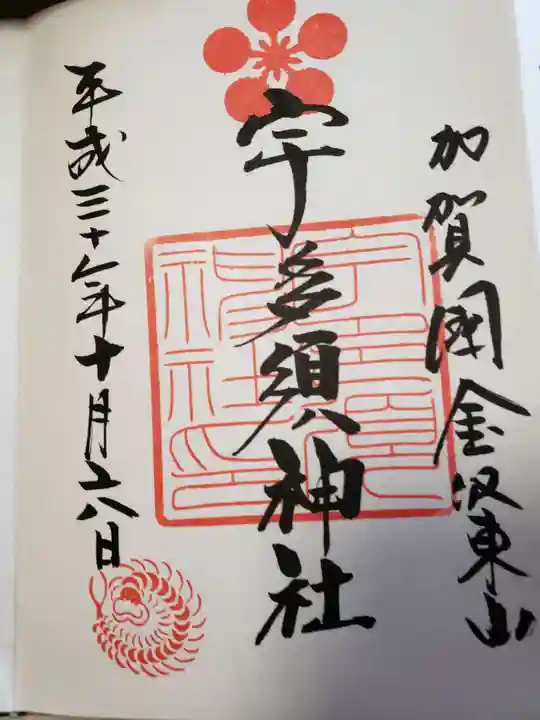 加賀國金沢東山
宇多須神社
平成三十年十月二八日